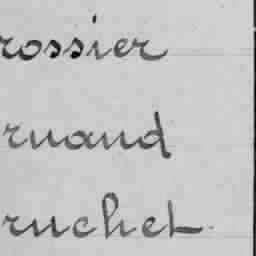 rossier
rnand
ruchet.